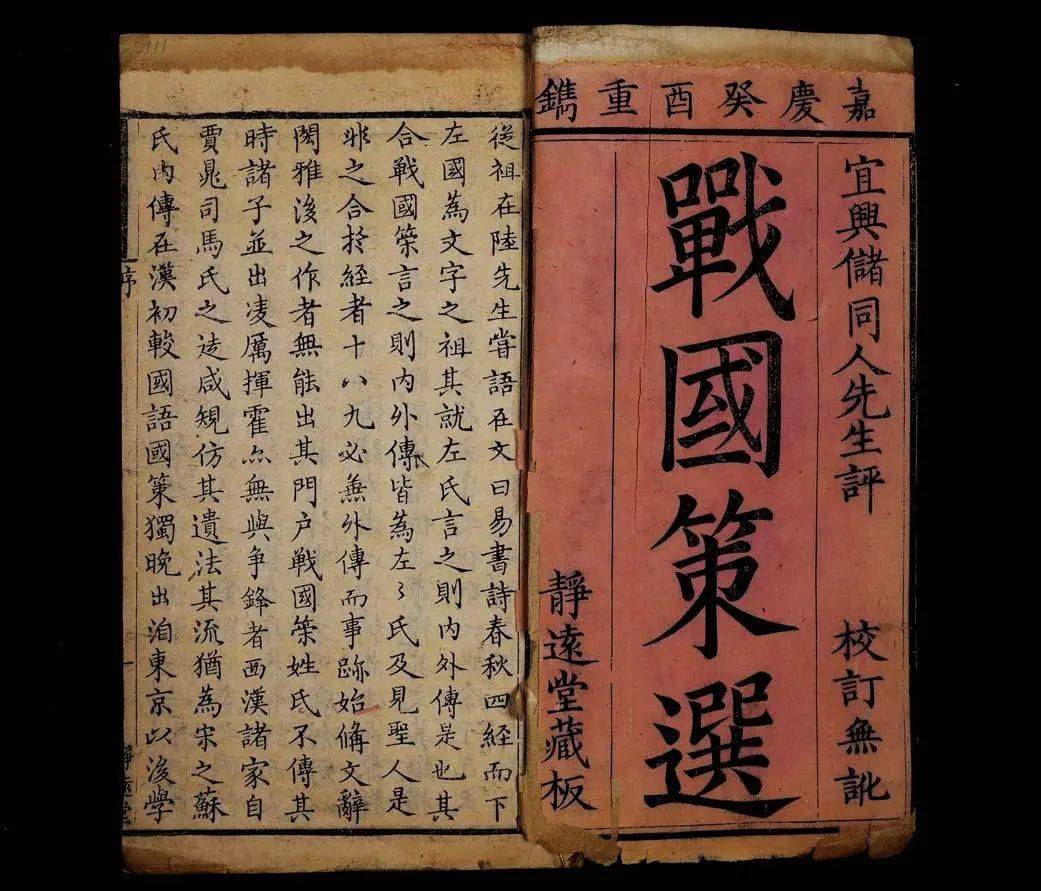 嘉慶癸酉重鐫
宜興儲同人先生評
校訂無訛
戰國策選
靜遠堂藏板
從祖在陸先生嘗語在文曰易書詩春秋四經而下
左國為文字之祖其就左氏言之則內外傳是也其
合戰國策言之則內外傳皆為左〻氏及見聖人是
非之合於經者十八九必無外傳而事跡始備文辭
閎雅後之作者無能出其門户戰國策姓氏不傳其
時諸子並出凌厲揮霍亦無與爭鋒者西漢諸家自
賈晁司馬氏之徒咸規仿其遺法其流猶為宋之蘇
氏內傳在漢初較國語國策獨晚出洎東京以後學
序
一
靜遠堂